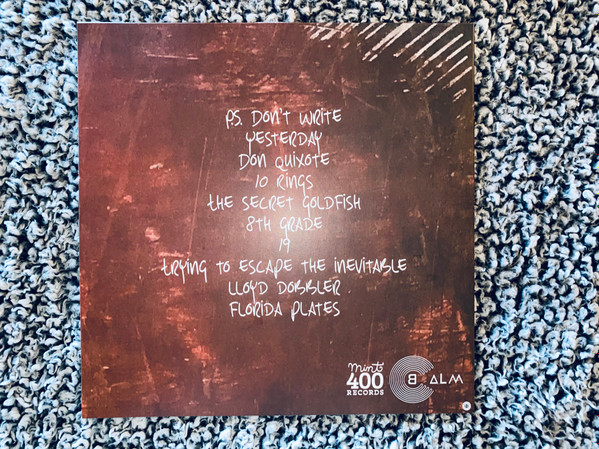 P.S. DON'T WRITE
YESTERDAY
DON QUIXOTE
10 RINGS
THE SECRET GOLDFISH
8TH GRADE
19
TRYING TO ESCAPE THE INEVITABLE
LLOYD DOBBLER
FLORIDA PLATES
mint
400
RECORDS
B CALM